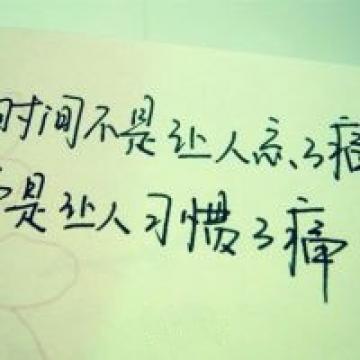 时间不是让人忘了痛
是让人习惯了痛